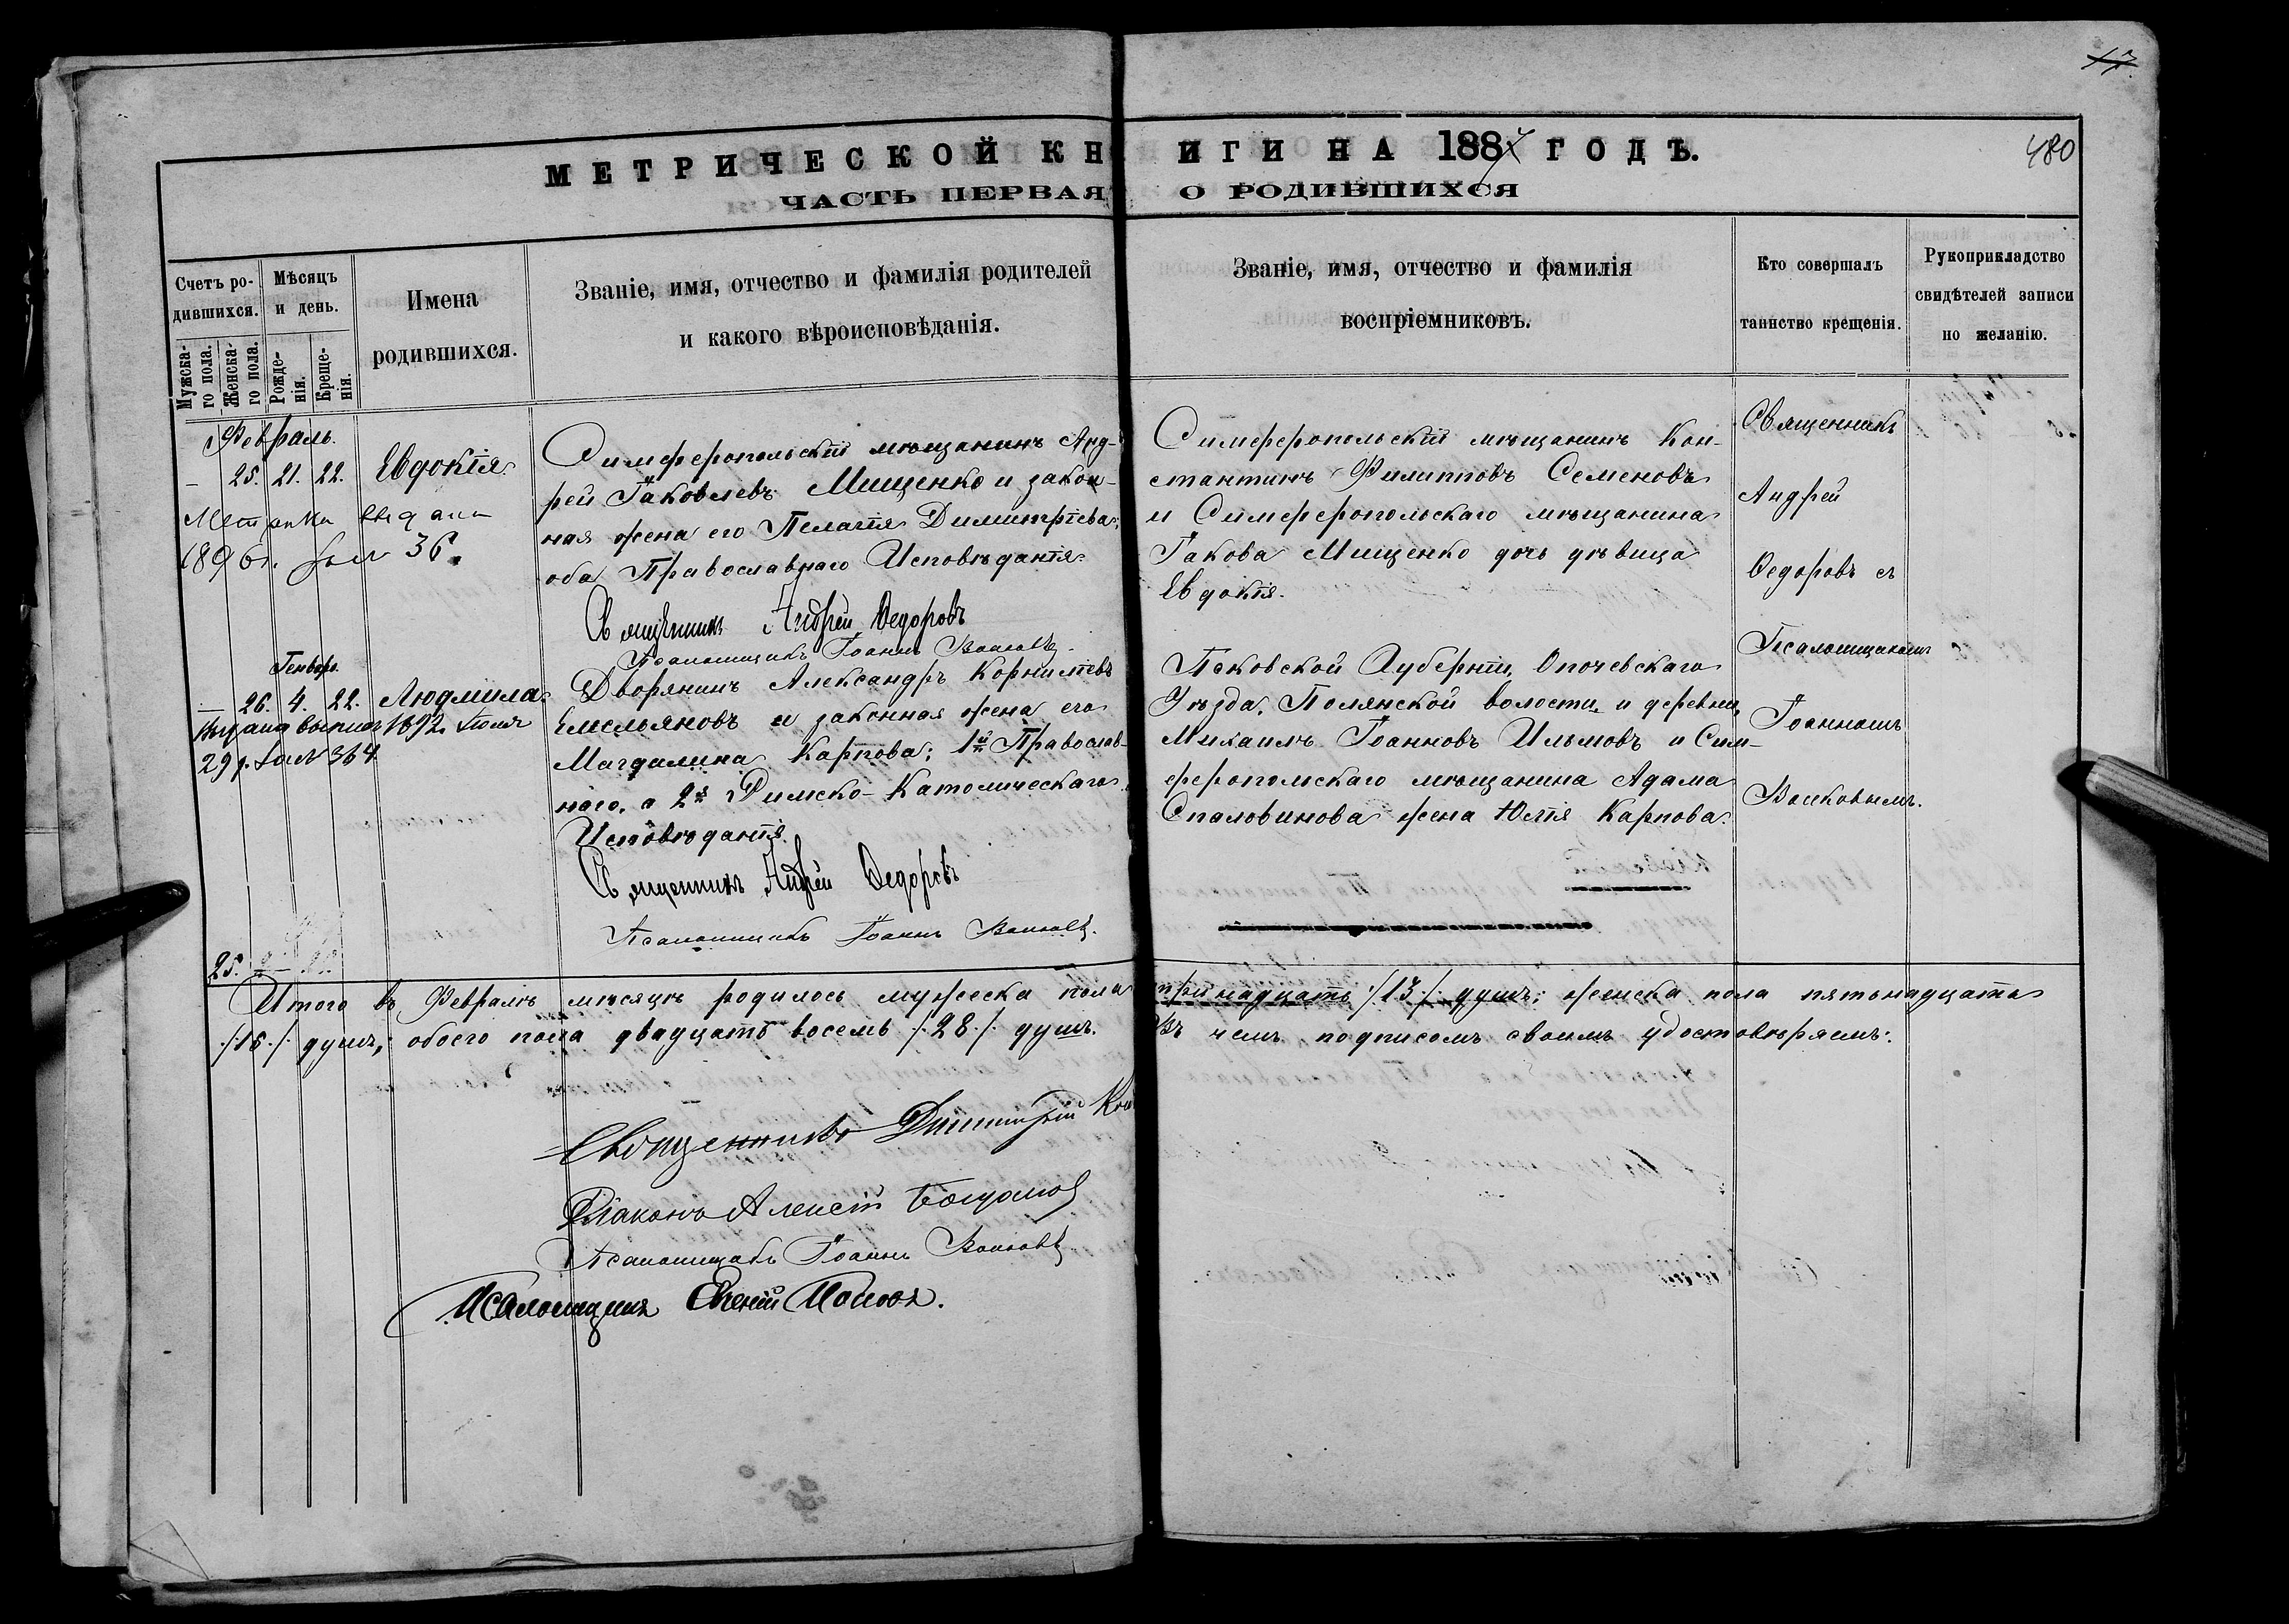 17
480
МЕТРИЧЕСКОЙ КНИГИ НА 1887 ГОДЪ.
ЧАСТЬ ПЕРВАЯ О РОДИВШИХСЯ
Счетъ ро-
дившихся.
Мужска-
го пола.
Женска-
го пола.
Мѣсяцъ
и день.
Рожде-
нія.
Креще-
нія.
Имена
родившихся.
Званіе, имя, отчество и фамилія родителей
и какого вѣроисповѣданія.
Званіе, имя, отчество и фамилія
воспріемниковъ.
Кто совершалъ
таинство крещенія.
Рукоприкладство
свидѣтелей записи
по желанію.
Февраль.
– 25. 21. 22. Евдокія
Метрика выдана
1896 г. за № 36.
Симферопольскій мѣщанинъ Анд-
рей Іаковлевъ Мищенко и закон-
ная жена его Пелагія Димитріева;
оба Православнаго Исповѣданія.
Священникъ Андрей Ѳедоровъ
Псаломщикъ Іоаннъ Волковъ.
Симферопольскій мѣщанинъ Кон-
стантинъ Филипповъ Семеновъ
и Симферопольскаго мѣщанина
Іакова Мищенко дочь дѣвица
Евдокія.
Священникъ
Андрей
Ѳедоровъ съ
Псаломщикомъ
Іоанномъ
Волковымъ.
Генварь.
– 26. 4. 22. Людмила.
Выдана выпись 1892. Іюля
29 д. за № 364
Дворянинъ Александръ Корниліевъ
Емельяновъ и законная жена его
Магдалина Карпова; 1й Православ-
наго, а 2я Римско-Католическаго
Исповѣданія.
Священникъ Андрей Ѳедоровъ
Псаломщикъ Іоаннъ Волковъ.
Псковской Губерніи, Опочевскаго
Уѣзда, Полянской волости и деревни,
Михаилъ Іоанновъ Ильмовъ и Сим-
феропольскаго мѣщанина Адама
Спаловинова жена Юлія Карпова.
25.
Итого въ Февралѣ мѣсяцѣ родилось мужеска пола тринадцать /13/ душъ; женска пола пятьнадцать
/15/ душъ, обоего пола двадцать восемь /28/ душъ. Въ чемъ подписомъ своимъ удостовѣряемъ:
Священникъ Димитрій
Діаконъ Алексій
Псаломщикъ Іоаннъ Волковъ
Псаломщикъ Евгеній Поповъ.